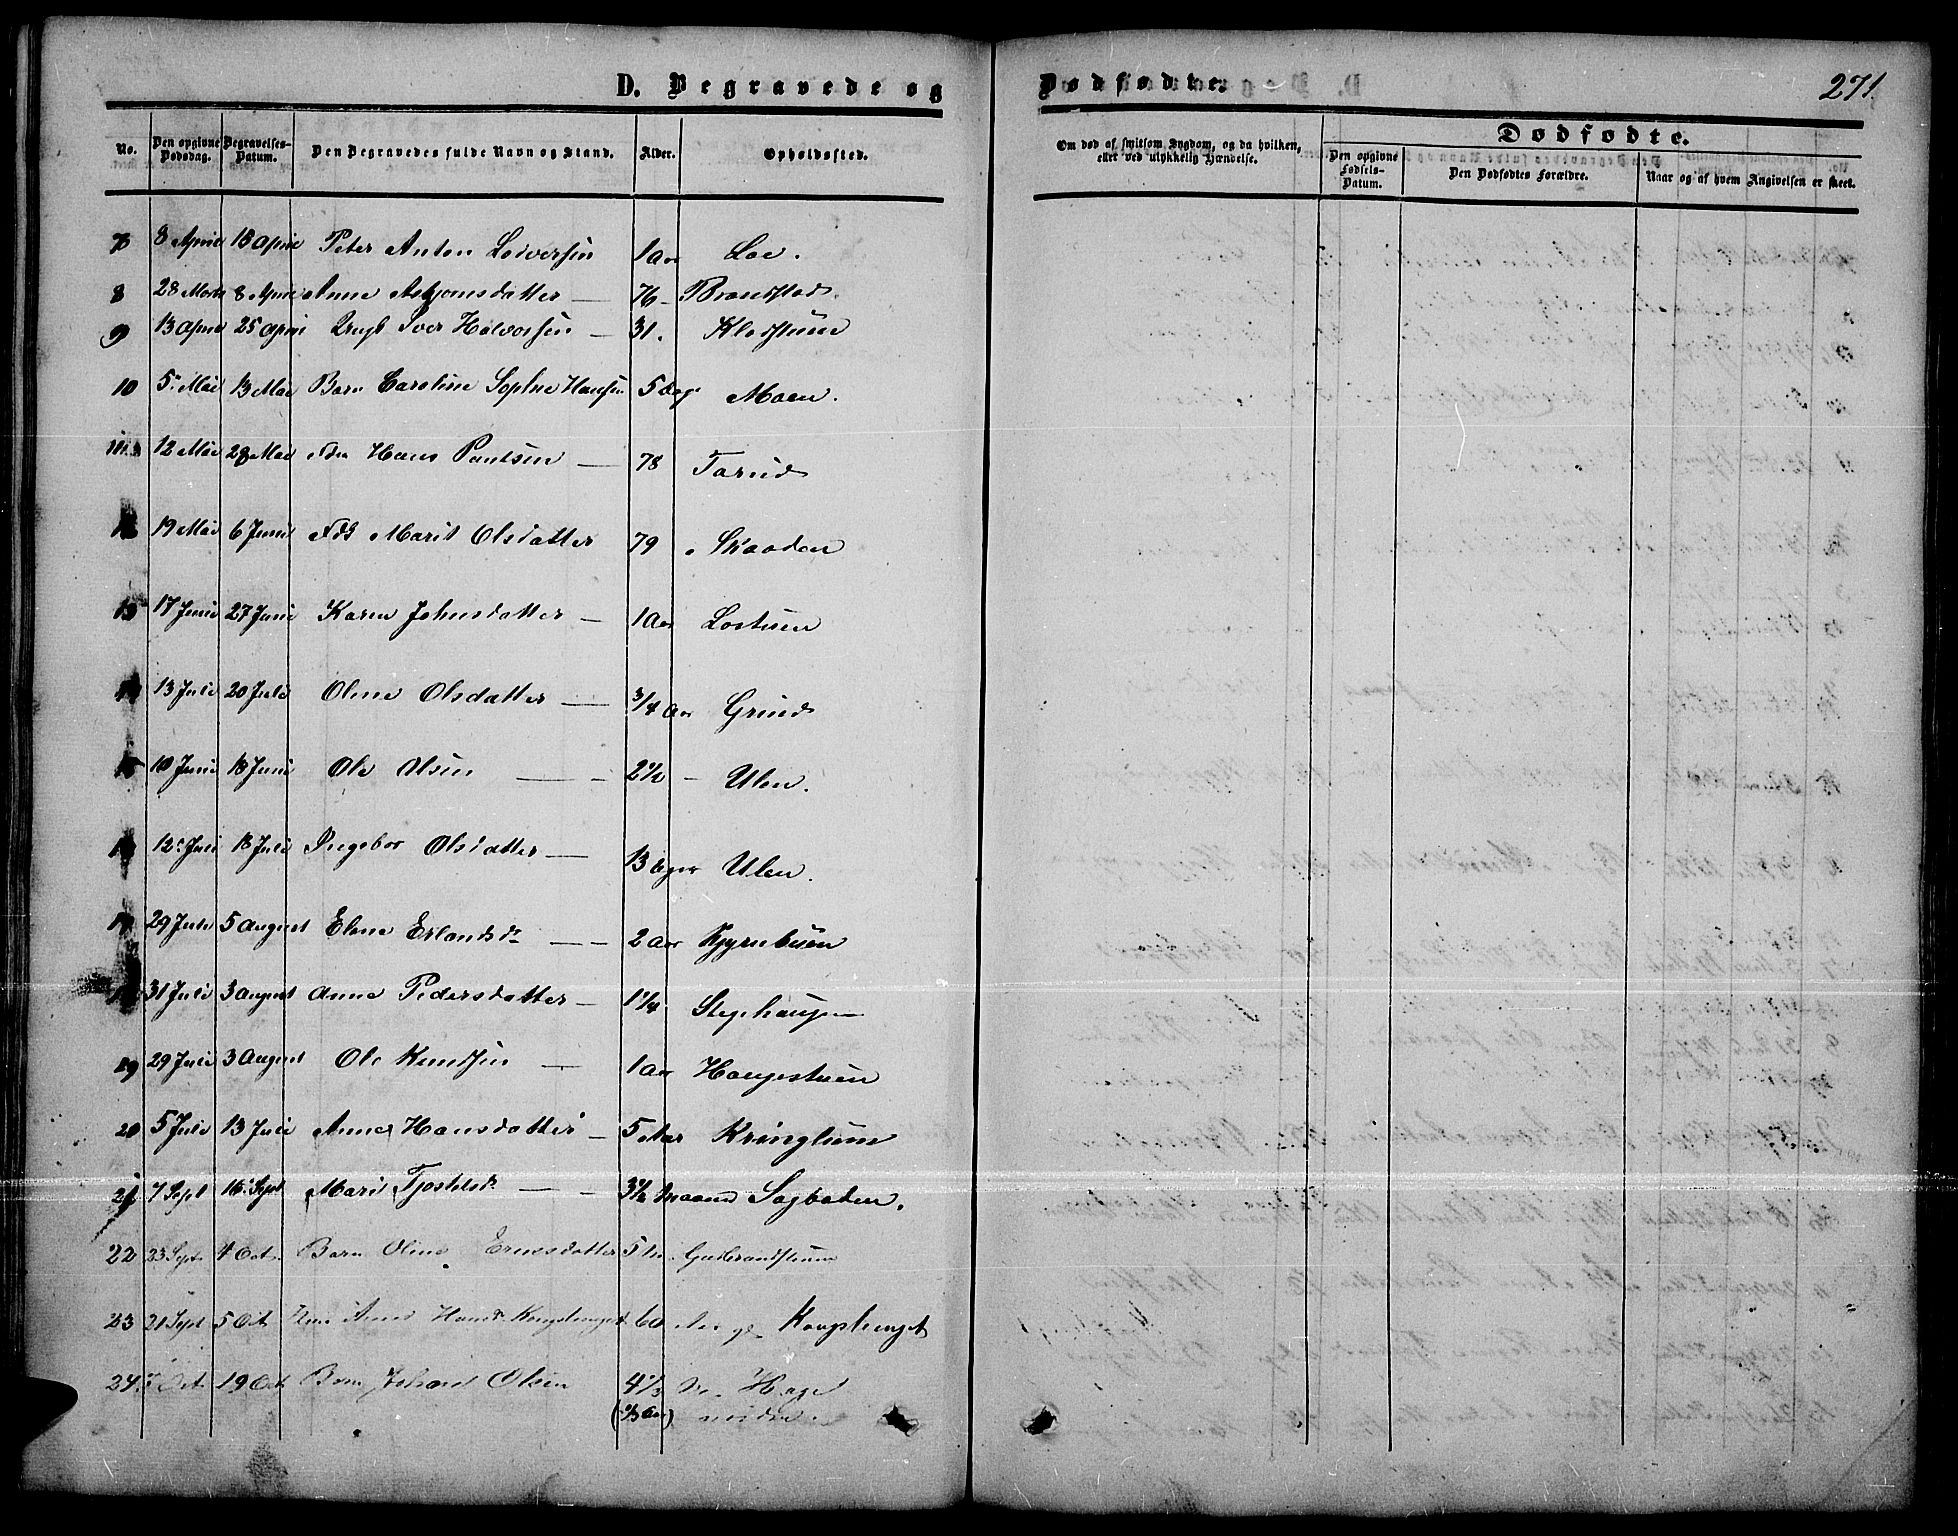 D. Begravede og Dødfødte.
271
No. Den opgivne Dødsdag. Begravelses-Datum. Den Begravedes fulde Navn og Stand. Alder. Opholdssted.
Om død af smitsom Sygdom, og da hvilken, eller ved ulykkelig Hændelse.
Dødfødte.
Den opgivne Fødsels-Datum. Den Dødfødtes Forældre. Naar og af hvem Angivelsen er skeet.
7 8 April 18 April Peter Anton 1 Aar Loe.
8 28 Marts 8 April Anne Asbjørnsdatter — 76 — Brandstad
9 13 April 25 April Ungk Iver Halvorsen — 31. Kledstuen
10 5 Mai 13 Mai Barn Caroline Sophie Hansen 5 Dage Moen.
11 12 Mai 28 Mai Hans Paulsen — 78 Tarud
12 19 Mai 6 Juni Fdk Marit Olsdatter 79 Skaaden
13 17 Juni 27 Juni Karen Johnsdatter — 1 Aar Lostuen
14 13 Juli 20 Juli Oline Olsdatter — 3/4 Aar Grind
15 10 Juni 18 Juni Ole Olsen — 2 1/2 — Ulen.
16 12 Juli 18 Juli Ingebor Olsdatter — 13 Uger Ulen.
17 29 Juli 5 August Eline Erlandsdr — 2 Aar
18 31 Juli 3 August Anne Pedersdatter — 1 1/4 Stephaugen
19 29 Juli 3 August Ole Knudsen — 1 Aar Haugestuen
20 5 Juli 13 Juli Anne Hansdatter — 5 Aar Kringluun
21 7 Sept 16 Sept Marit Tjostelsdr — 3 1/2 Maaned Sagbaden.
22 23 Sept 4 Oct. Barn Oline 5 Gudbrandstuen
23 21 Sept 5 Oct. Anne Hansdr 60 Kongslenget
24 Oct. 19 Oct. Barn Johan Olsen 4 1/3